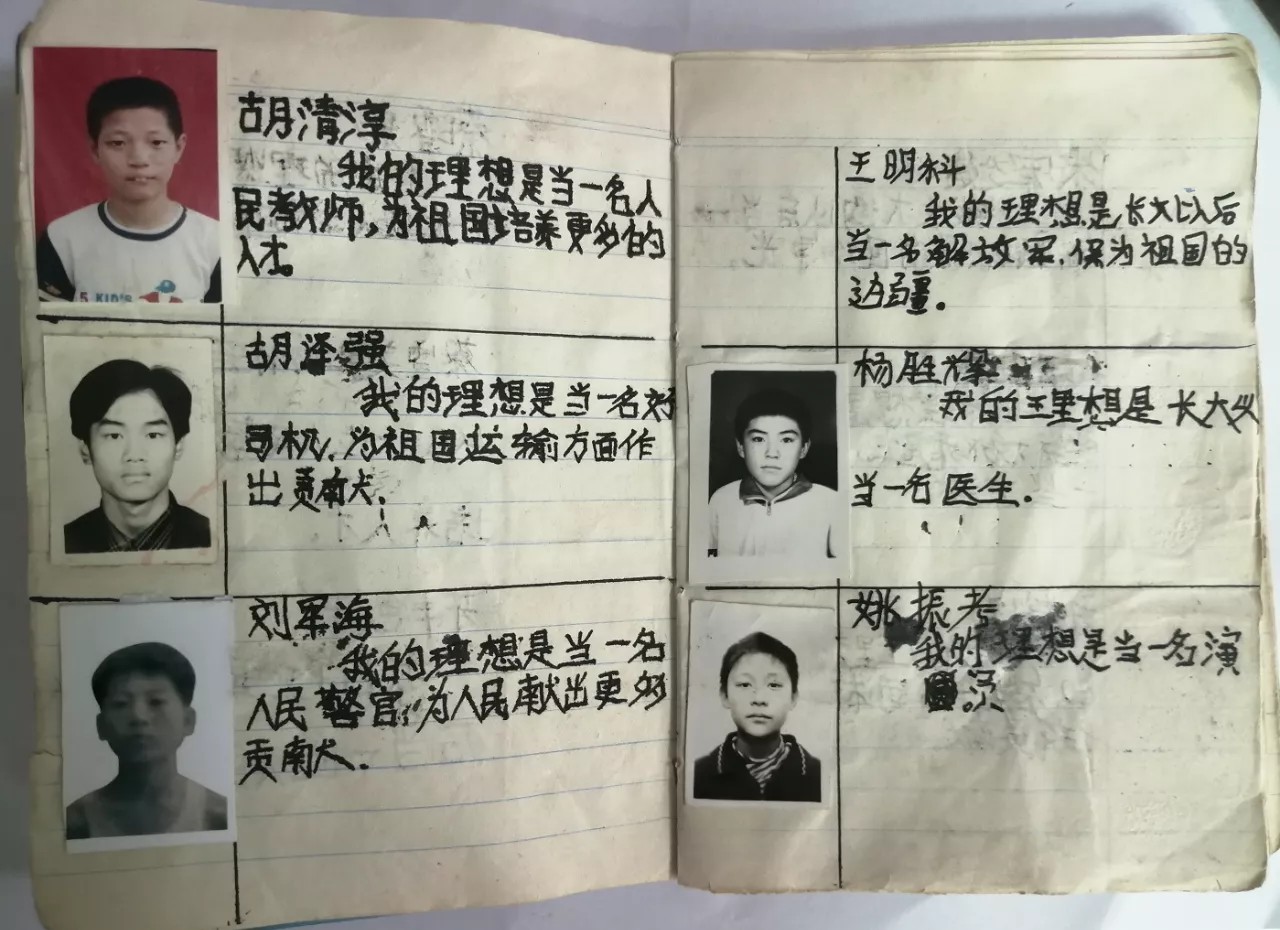 胡清淳
我的理想是当一名人
民教师,为祖国培养更多的
人才。
5 KID'S
胡泽强
我的理想是当一名好
司机,为祖国运输方面作
出贡献.
刘军海
我的理想是当一名
人民警官,为人民献出更多
贡献.
王明科
我的理想是长大以后
当一名解放军,保为祖国的
边疆.
杨胜辉
我的理想是长大以
当一名医生.
姚振考
我的理想是当一名演